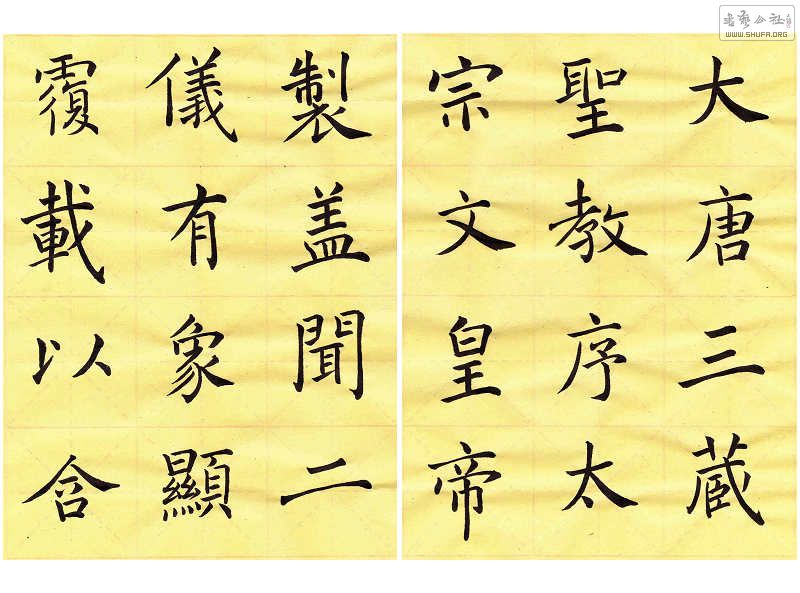 大唐三蔵
聖教序太
宗文皇帝
製盖聞二
儀有象顯
覆載以含
書艺公社
WWW.SHUFA.ORG